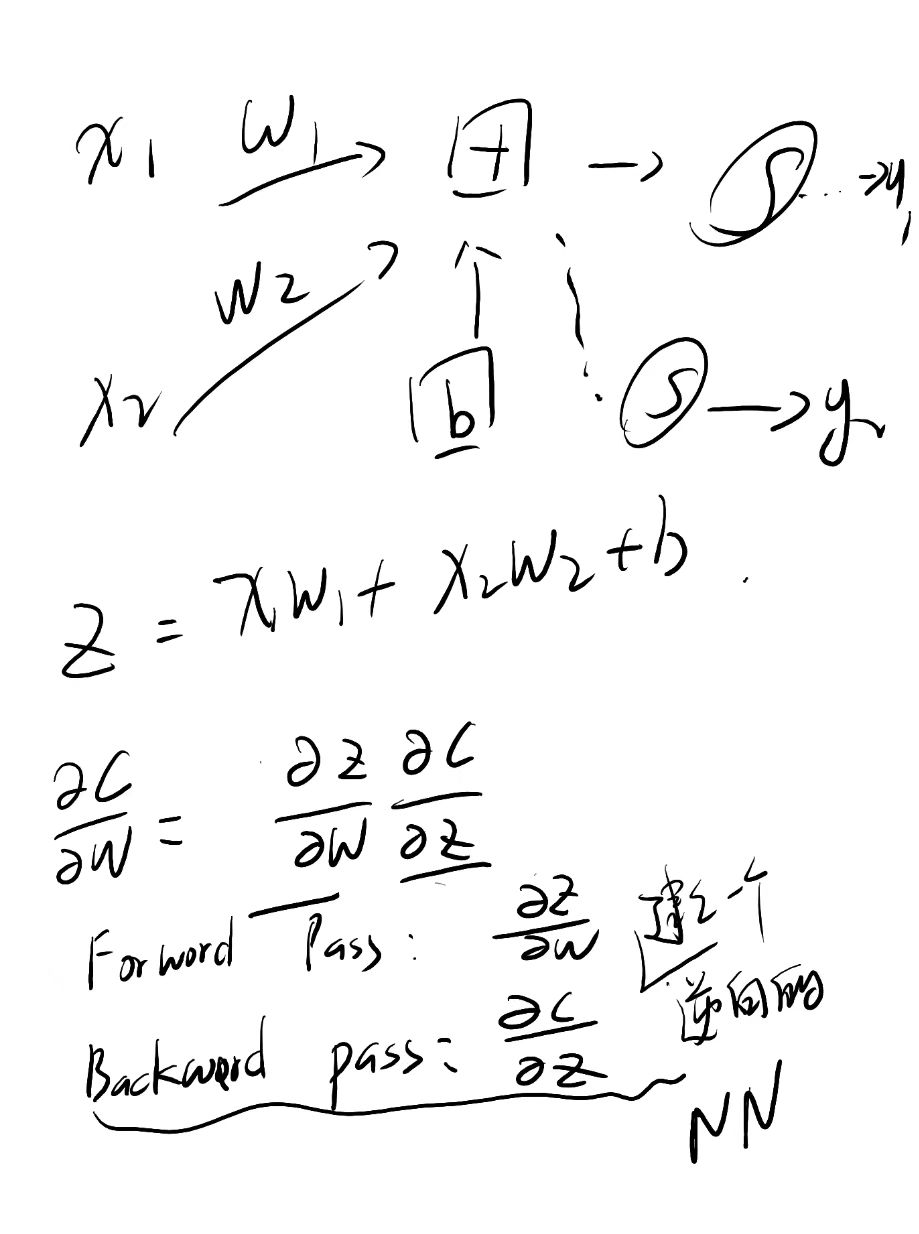 x₁ w₁ → + → S ... → y₁
w₂
x₂ b S → y₂
z = x₁w₁ + x₂w₂ + b
∂C/∂w = ∂z/∂w ∂C/∂z
Forword Pass: ∂z/∂w 建立一个
逆向的
Backword pass: ∂C/∂z
NN